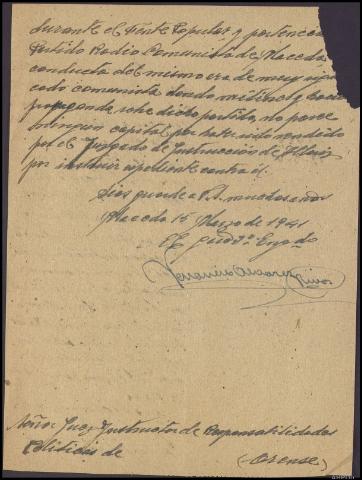 durante el Frente Popular y pertenecia
Partido Radio Comunista de Maceda,
conducta del mismo era de muy
cado comunista dando mitines y
propaganda sobre dicho partido, no posee
ningun capital por haber sido
por el Juzgado de Instrucción de Allariz
por instruir expediente contra él.
Dios guarde a V.S. muchos años
Maceda 15 Marzo de 1941
El guardia 2º Engdo
Venancio Alvarez
Señor Juez Instructor de Responsabilidades
Politicas de (Orense)